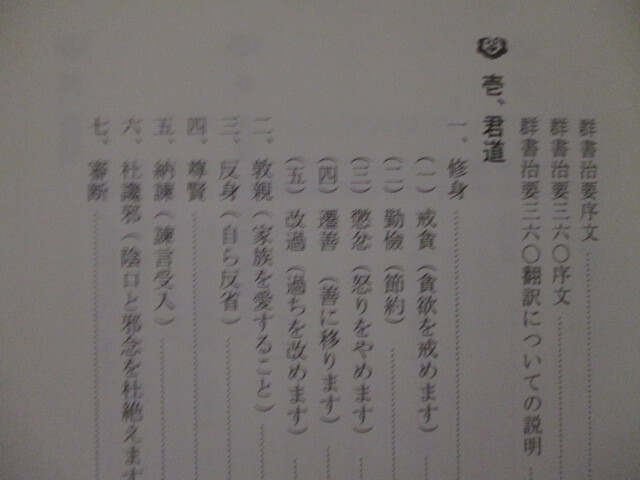 群書治要序文
群書治要三六〇序文
群書治要三六〇翻訳についての説明
壱、君道
一、修身
(一) 戒貪 (貪欲を戒めます)
(二) 勤儉 (節約)
(三) 懲忿 (怒りをやめます)
(四) 遷善 (善に移ります)
(五) 改過 (過ちを改めます)
二、敦親 (家族を愛すること)
三、反身 (自ら反省)
四、尊賢
五、納諫 (諫言受入)
六、杜讒邪 (陰口と邪念を杜絶えます
七、審断